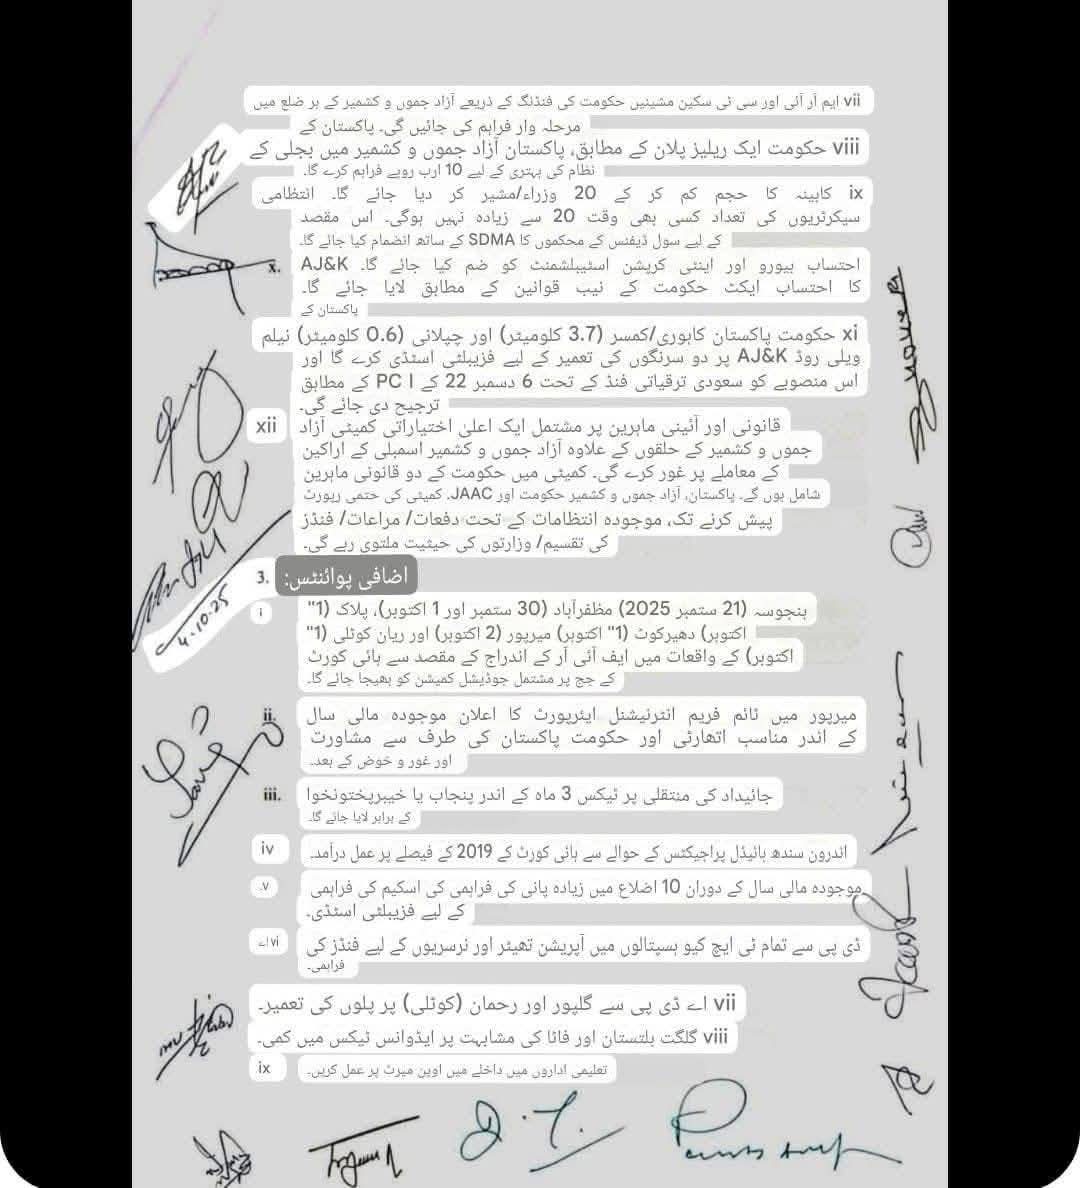 vii ایم آر آئی اور سی ٹی سکین مشینیں حکومت کی فنڈنگ کے ذریعے آزاد جموں و کشمیر کے ہر ضلع میں
مرحلہ وار فراہم کی جائیں گی۔ پاکستان کے
viii حکومت ایک ریلیز پلان کے مطابق، پاکستان آزاد جموں و کشمیر میں بجلی کے
نظام کی بہتری کے لیے 10 ارب روپے فراہم کرے گا۔
ix کابینہ کا حجم کم کر کے 20 وزراء/مشیر کر دیا جائے گا۔ انتظامی
سیکرٹریوں کی تعداد کسی بھی وقت 20 سے زیادہ نہیں ہوگی۔ اس مقصد
کے لیے سول ڈیفنس کے محکموں کا SDMA کے ساتھ انضمام کیا جائے گا۔
x. احتساب بیورو اور اینٹی کرپشن اسٹیبلشمنٹ کو ضم کیا جائے گا۔ AJ&K
کا احتساب ایکٹ حکومت کے نیب قوانین کے مطابق لایا جائے گا۔
پاکستان کے
xi حکومت پاکستان کاہوری/کمسر (3.7 کلومیٹر) اور چپلانی (0.6 کلومیٹر) نیلم
ویلی روڈ AJ&K پر دو سرنگوں کی تعمیر کے لیے فزیبلٹی اسٹڈی کرے گا اور
اس منصوبے کو سعودی ترقیاتی فنڈ کے تحت 6 دسمبر 22 کے PC I کے مطابق
ترجیح دی جائے گی۔
xii قانونی اور آئینی ماہرین پر مشتمل ایک اعلیٰ اختیاراتی کمیٹی آزاد
جموں و کشمیر کے حلقوں کے علاوہ آزاد جموں و کشمیر اسمبلی کے اراکین
کے معاملے پر غور کرے گی۔ کمیٹی میں حکومت کے دو قانونی ماہرین
شامل ہوں گے۔ پاکستان، آزاد جموں و کشمیر حکومت اور JAAC۔ کمیٹی کی حتمی رپورٹ
پیش کرنے تک، موجودہ انتظامات کے تحت دفعات/ مراعات/ فنڈز
کی تقسیم/ وزارتوں کی حیثیت ملتوی رہے گی۔
3. اضافی پوائنٹس:
4.10.25
i بنجوسہ (21 ستمبر 2025) مظفرآباد (30 ستمبر اور 1 اکتوبر)، پلاک (1"
اکتوبر) دھیرکوٹ (1" اکتوبر) میرپور (2 اکتوبر) اور ریان کوٹلی (1"
اکتوبر) کے واقعات میں ایف آئی آر کے اندراج کے مقصد سے ہائی کورٹ
کے جج پر مشتمل جوڈیشل کمیشن کو بھیجا جائے گا۔
ii. میرپور میں ٹائم فریم انٹرنیشنل ایئرپورٹ کا اعلان موجودہ مالی سال
کے اندر مناسب اتھارٹی اور حکومت پاکستان کی طرف سے مشاورت
اور غور و خوض کے بعد۔
iii. جائیداد کی منتقلی پر ٹیکس 3 ماہ کے اندر پنجاب یا خیبرپختونخوا
کے برابر لایا جائے گا۔
iv اندرون سندھ ہائیڈل پراجیکٹس کے حوالے سے ہائی کورٹ کے 2019 کے فیصلے پر عمل درآمد۔
v. موجودہ مالی سال کے دوران 10 اضلاع میں زیادہ پانی کی فراہمی کی اسکیم کی فراہمی
کے لیے فزیبلٹی اسٹڈی۔
vi اے ڈی پی سے تمام ٹی ایچ کیو ہسپتالوں میں آپریشن تھیٹر اور نرسریوں کے لیے فنڈز کی
فراہمی۔
vii اے ڈی پی سے گلپور اور رحمان (کوٹلی) پر پلوں کی تعمیر۔
viii گلگت بلتستان اور فاٹا کی مشابہت پر ایڈوانس ٹیکس میں کمی۔
ix تعلیمی اداروں میں داخلے میں اوپن میرٹ پر عمل کریں۔